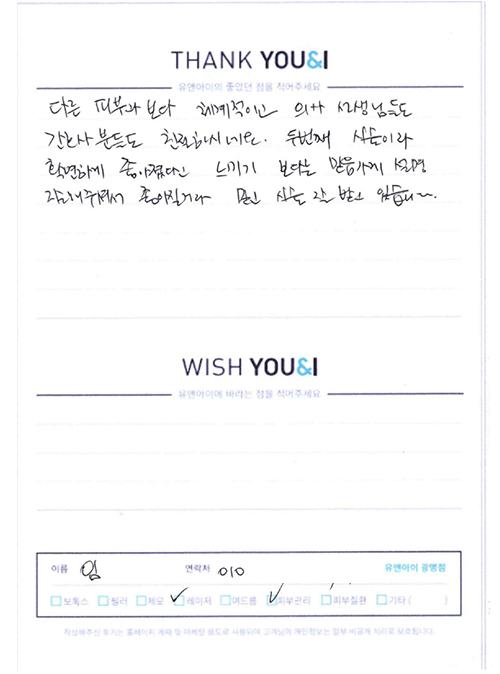 THANK YOU&I
유앤아이의 좋았던 점을 적어주세요
다른 피부과보다 체계적이고 의사 선생님들도
간호사분들도 친절하시네요. 두번째 시술이라
확연하게 좋아졌다고 느끼기 보다는 믿음가게 설명
잘해주셔서 좋아질거라 믿고 시술 잘 받고 있습니다.
WISH YOU&I
유앤아이에 바라는 점을 적어주세요
이름 임 연락처 010 유앤아이 광명점
보톡스 필러 제모 레이저 여드름 피부관리 피부질환 기타 ( )
작성해주신 후기는 홈페이지 게재 및 마케팅 용도로 사용되며 고객님의 개인정보는 일부 비공개 처리로 보호됩니다.